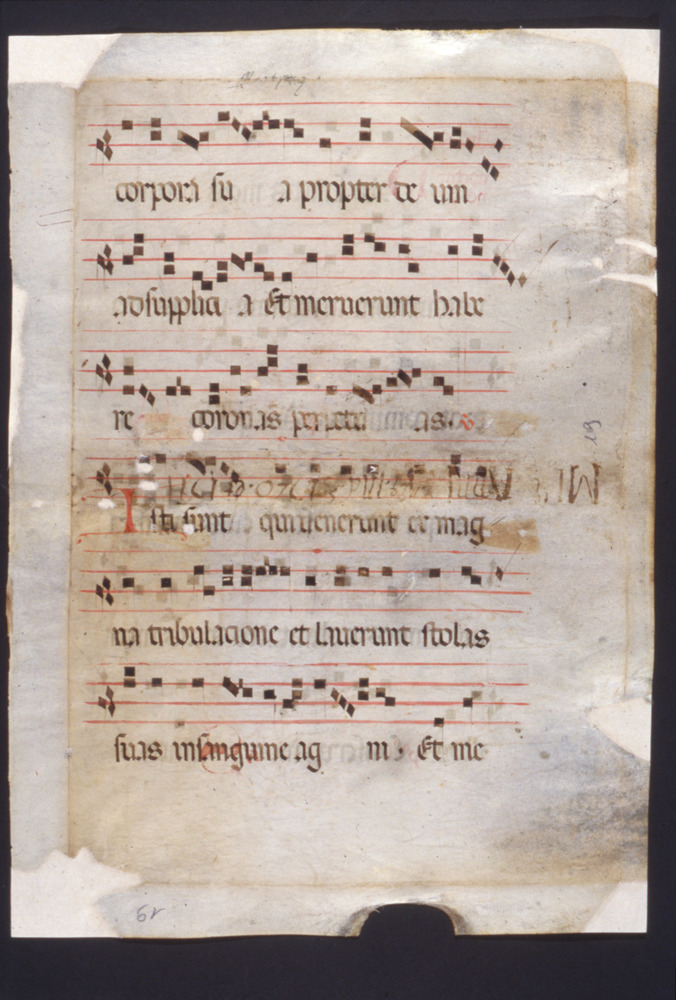 corpora su a propter de um
ad supplici a Et meruerunt habe
re coronas perpetu as.
Isti sunt qui uenerunt ex mag
na tribulacione et lauerunt stolas
suas in sanguine ag ni. Et me